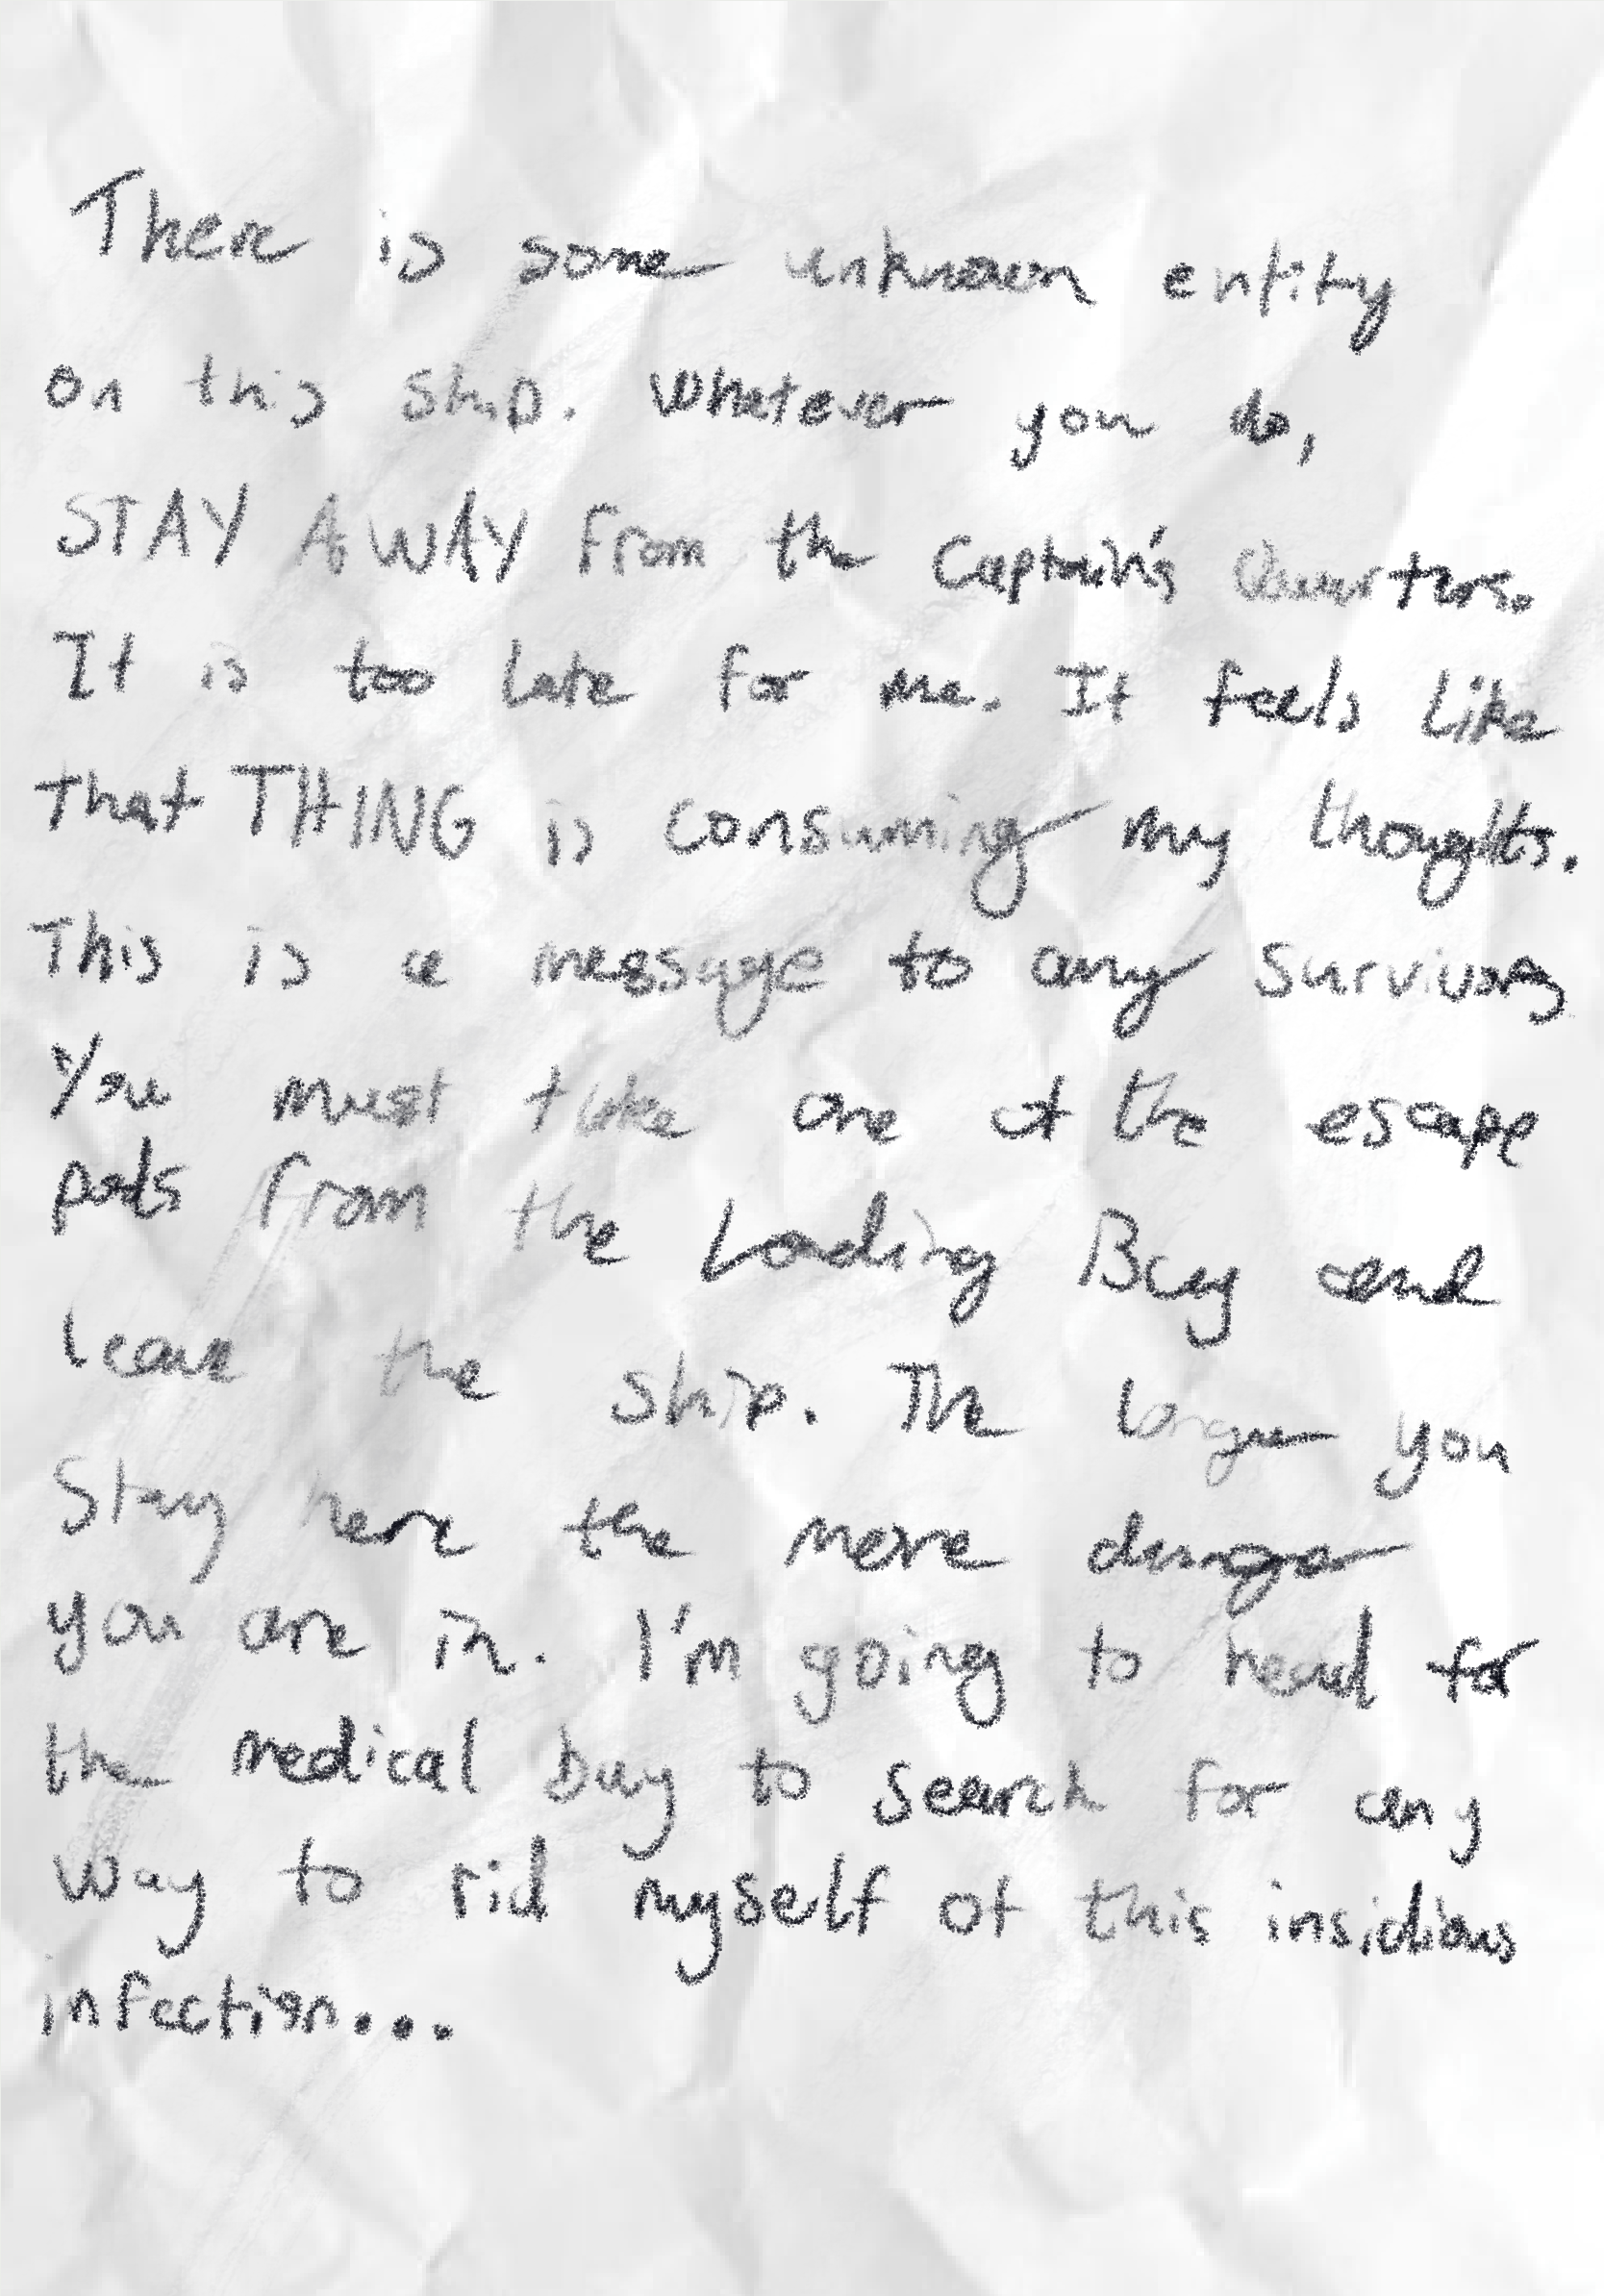 There is some unknown entity
on this ship. Whatever you do,
STAY AWAY from the Captain's Quarters.
It is too late for me. It feels like
that THING is consuming my thoughts.
This is a message to any survivors
You must take one of the escape
pods from the Loading Bay and
leave the ship. The longer you
Stay here the more danger
you are in. I'm going to head for
the medical bay to search for any
way to rid myself of this insidious
infection...